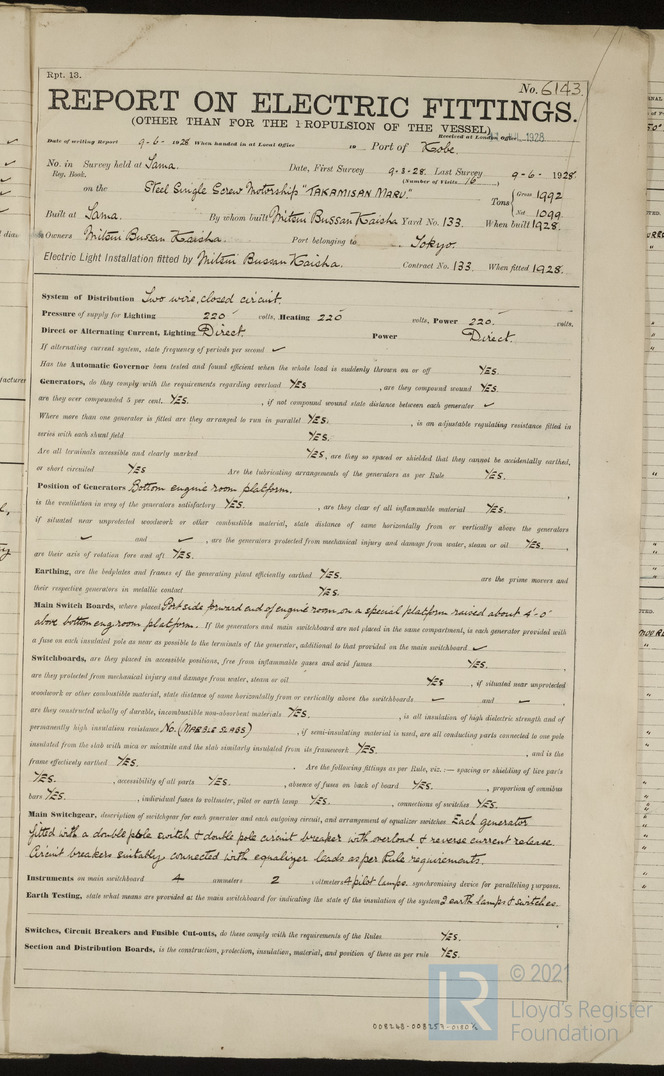 Rpt. 13.
No. 6143.
REPORT ON ELECTRIC FITTINGS.
(OTHER THAN FOR THE PROPULSION OF THE VESSEL)
Received at London Office JUL 1928
Date of writing Report 9-6-1928 When handed in at Local Office 19 Port of Kobe.
No. in Reg. Book. Survey held at Tama. Date, First Survey 9-3-28. Last Survey 9-6-1928.
(Number of Visits 16)
on the Steel Single Screw Motorship "TAKAMISAN MARU." Tons { Gross 1992 Net 1099
Built at Tama. By whom built Mitsui Bussan Kaisha Yard No. 133. When built 1928.
Owners Mitsui Bussan Kaisha. Port belonging to Tokyo.
Electric Light Installation fitted by Mitsui Bussan Kaisha. Contract No. 133. When fitted 1928.
System of Distribution Two wire, closed circuit.
Pressure of supply for Lighting 220 volts, Heating 220 volts, Power 220. volts.
Direct or Alternating Current, Lighting Direct. Power Direct.
If alternating current system, state frequency of periods per second ✓
Has the Automatic Governor been tested and found efficient when the whole load is suddenly thrown on or off YES.
Generators, do they comply with the requirements regarding overload YES, are they compound wound YES.
are they over compounded 5 per cent. YES., if not compound wound state distance between each generator ✓
Where more than one generator is fitted are they arranged to run in parallel YES., is an adjustable regulating resistance fitted in
series with each shunt field YES.
Are all terminals accessible and clearly marked YES, are they so spaced or shielded that they cannot be accidentally earthed,
or short circuited YES Are the lubricating arrangements of the generators as per Rule YES.
Position of Generators Bottom engine room platform.
is the ventilation in way of the generators satisfactory YES., are they clear of all inflammable material YES.
if situated near unprotected woodwork or other combustible material, state distance of same horizontally from or vertically above the generators
✓ and ✓, are the generators protected from mechanical injury and damage from water, steam or oil YES.,
are their axis of rotation fore and aft YES.
Earthing, are the bedplates and frames of the generating plant efficiently earthed YES. are the prime movers and
their respective generators in metallic contact YES.
Main Switch Boards, where placed Port side forward end of engine room, on a special platform raised about 4'-0"
above bottom eng. room platform. If the generators and main switchboard are not placed in the same compartment, is each generator provided with
a fuse on each insulated pole as near as possible to the terminals of the generator, additional to that provided on the main switchboard ✓
Switchboards, are they placed in accessible positions, free from inflammable gases and acid fumes YES.,
are they protected from mechanical injury and damage from water, steam or oil YES, if situated near unprotected
woodwork or other combustible material, state distance of same horizontally from or vertically above the switchboards ✓ and ✓,
are they constructed wholly of durable, incombustible non-absorbent materials YES., is all insulation of high dielectric strength and of
permanently high insulation resistance No. (MARBLE SLABS), if semi-insulating material is used, are all conducting parts connected to one pole
insulated from the slab with mica or micanite and the slab similarly insulated from its framework YES., and is the
frame effectively earthed YES. Are the following fittings as per Rule, viz.:— spacing or shielding of live parts
YES., accessibility of all parts YES., absence of fuses on back of board YES., proportion of omnibus
bars YES., individual fuses to voltmeter, pilot or earth lamp YES., connections of switches YES.
Main Switchgear, description of switchgear for each generator and each outgoing circuit, and arrangement of equalizer switches. Each generator
fitted with a double pole switch & double pole circuit breaker with overload & reverse current release.
Circuit breakers suitably connected with equalizer leads as per Rule requirements.
Instruments on main switchboard 4 ammeters 2 voltmeters 4 pilot lamps. synchronising device for paralleling purposes.
Earth Testing, state what means are provided at the main switchboard for indicating the state of the insulation of the system 2 earth lamps & switches.
Switches, Circuit Breakers and Fusible Cut-outs, do these comply with the requirements of the Rules YES.
Section and Distribution Boards, is the construction, protection, insulation, material, and position of these as per rule YES.
© 2021
LR Lloyd's Register
Foundation